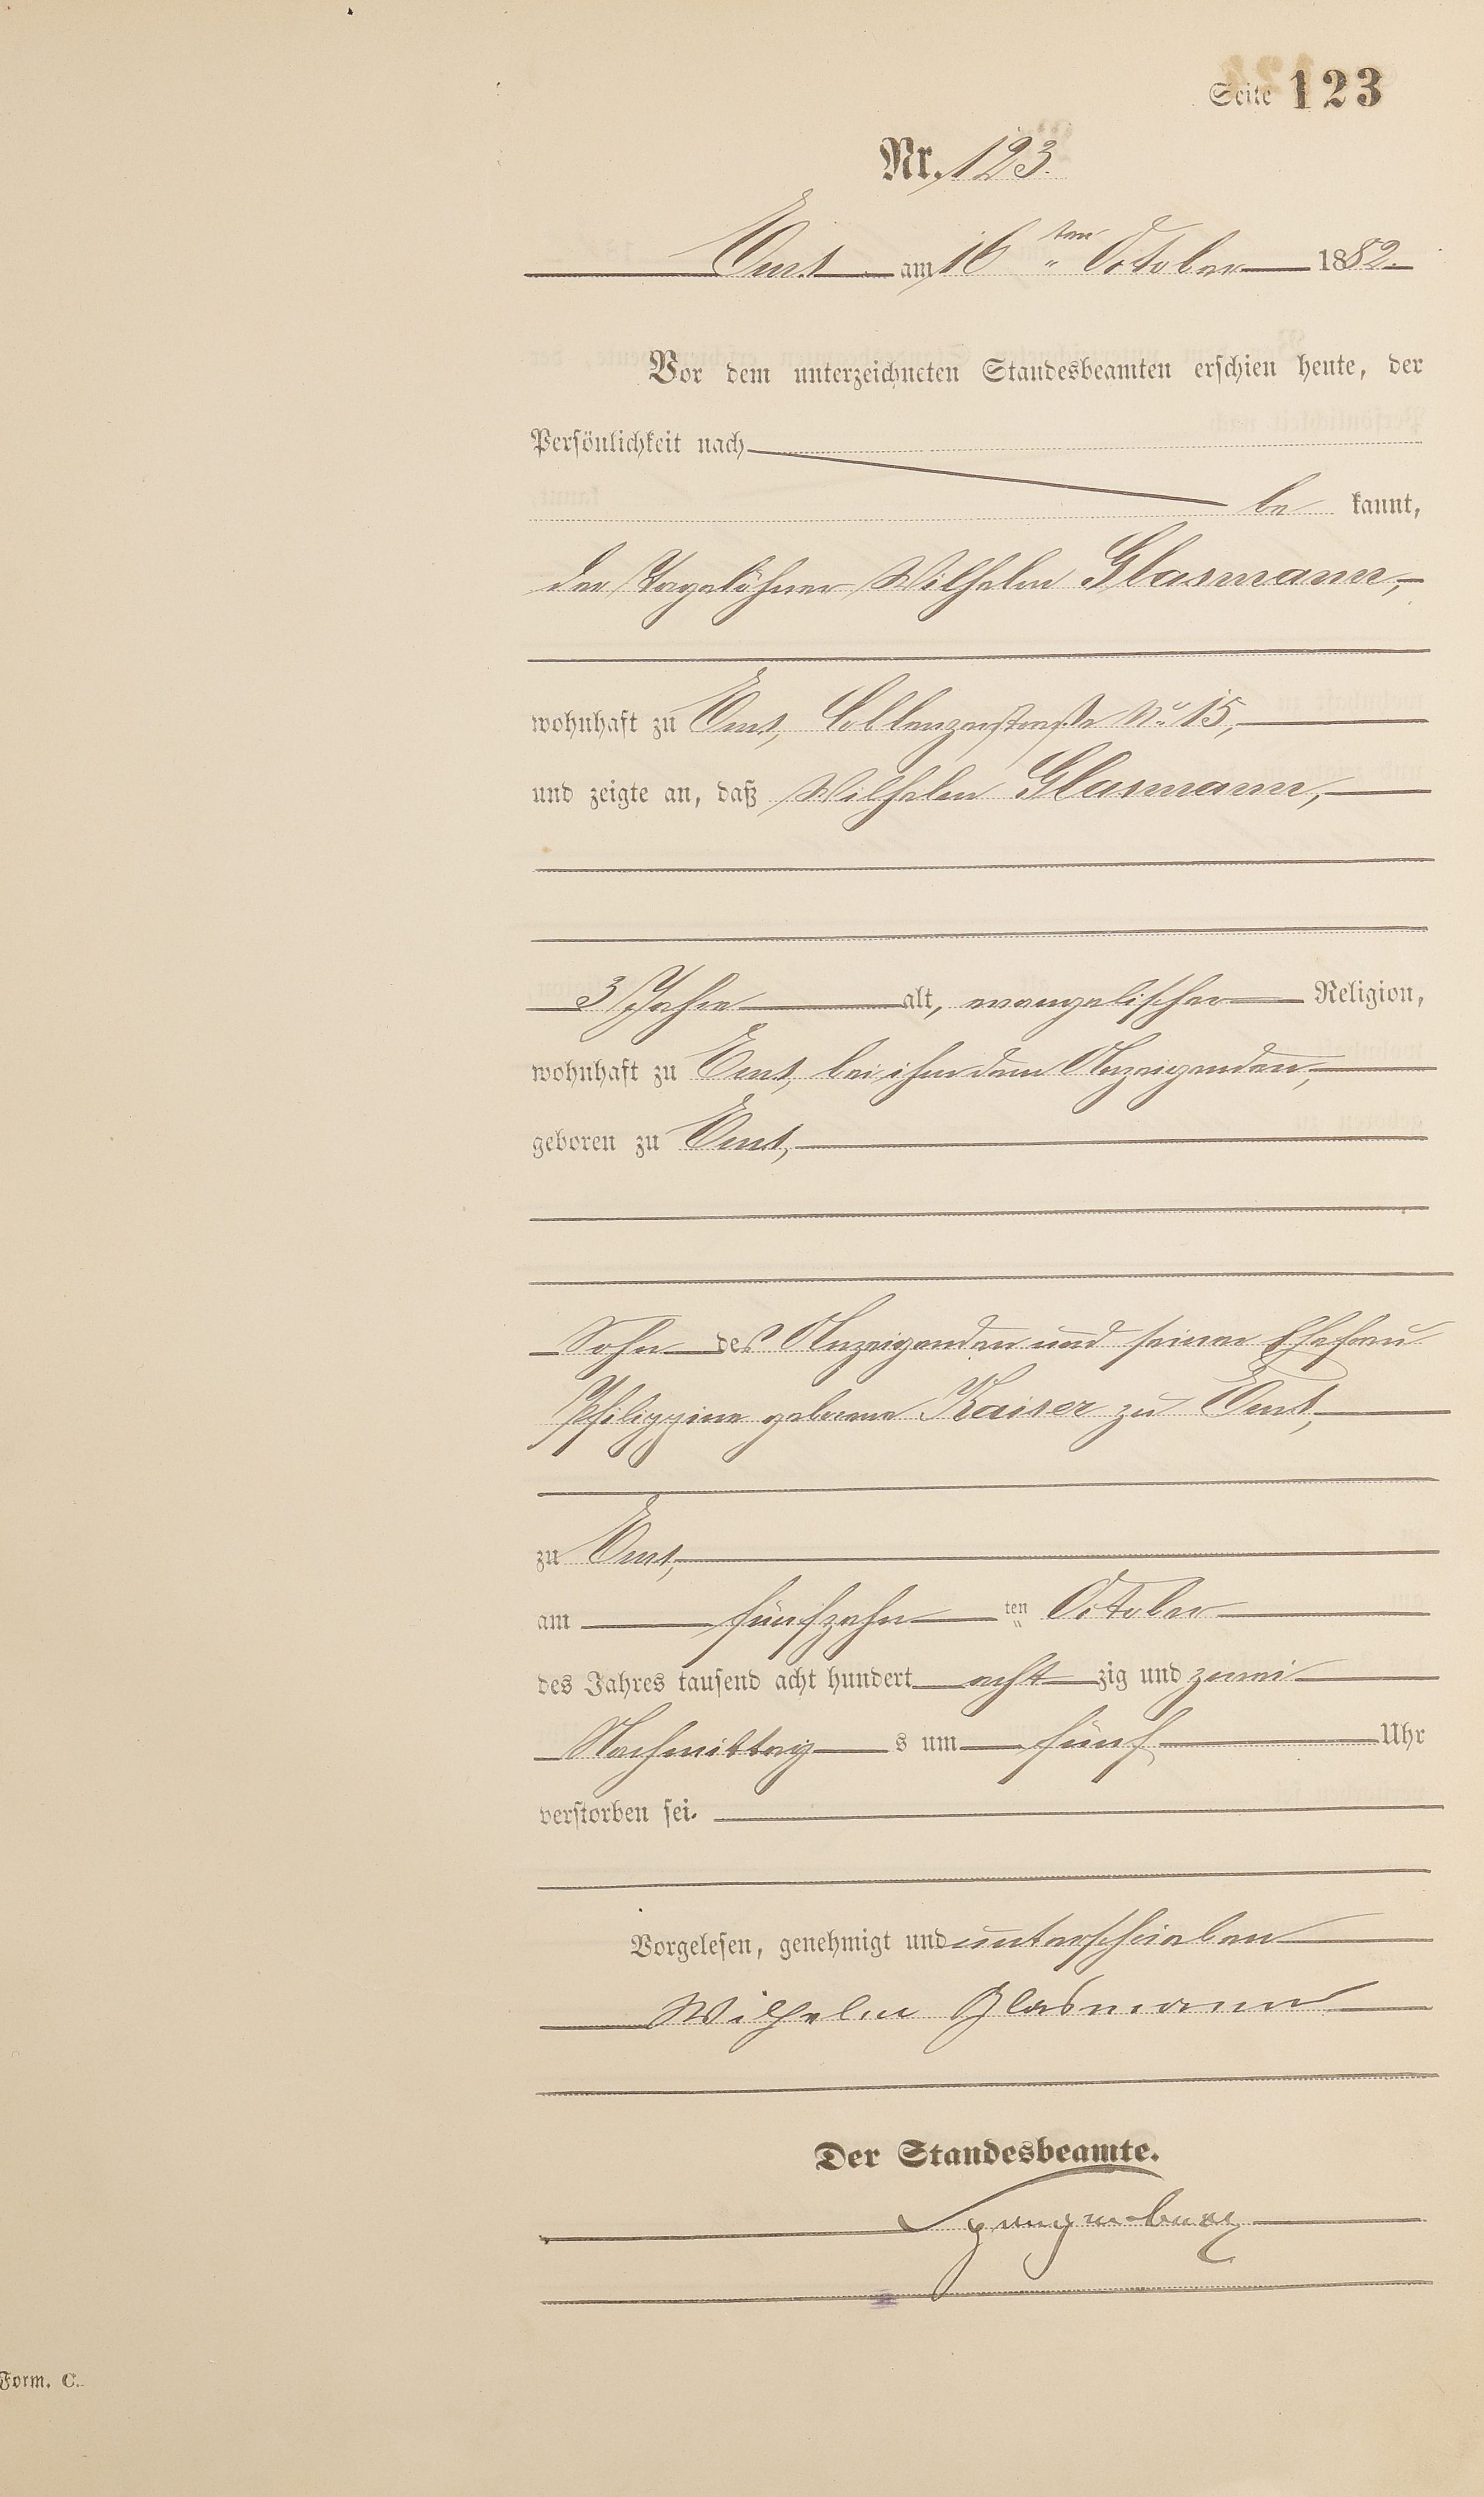 Seite 123
Nr. 123.
Ems am 16 ten October 1882.
Vor dem unterzeichneten Standesbeamten erschien heute, der
Persönlichkeit nach
be kannt,
der Tagelöhner Wilhelm Glasmann,
wohnhaft zu Ems, Coblenzerstraße No 15,
und zeigte an, daß Wilhelm Glasmann,
3 Jahre alt, evangelischer Religion,
wohnhaft zu Ems, bei ihm dem Anzeigenden,
geboren zu Ems,
Sohn des Anzeigenden und seiner Ehefrau
Philippine geborene Kaiser zu Ems,
zu Ems,
am fünfzehn ten October
des Jahres tausend acht hundert acht zig und zwei
Nachmittag s um fünf Uhr
verstorben sei.
Vorgelesen, genehmigt und unterschrieben
Wilhelm Glasmann
Der Standesbeamte.
Form. C.